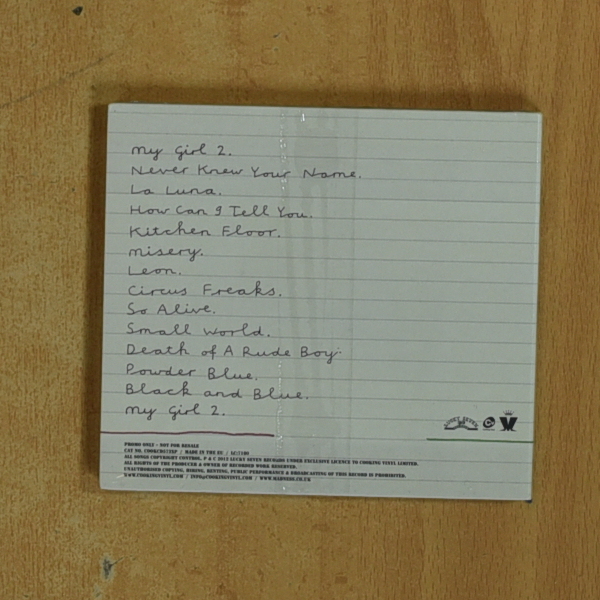 My Girl 2.
Never Knew Your Name.
La Luna.
How Can I Tell You.
Kitchen Floor.
Misery.
Leon.
Circus Freaks.
So Alive.
Small World.
Death of A Rude Boy.
Powder Blue.
Black and Blue.
My Girl 2.
PROMO ONLY - NOT FOR RESALE
MADE IN THE EU
ALL SONGS COPYRIGHT CONTROL. P & C 2012 LUCKY SEVEN RECORDS UNDER EXCLUSIVE LICENCE TO COOKING VINYL LIMITED.
ALL RIGHTS OF THE PRODUCER & OWNER OF RECORDED WORK RESERVED.
UNAUTHORISED COPYING, HIRING, RENTING, PUBLIC PERFORMANCE & BROADCASTING OF THIS RECORD IS PROHIBITED.
WWW.COOKINGVINYL.COM / INFO@COOKINGVINYL.COM / WWW.MADNESS.CO.UK